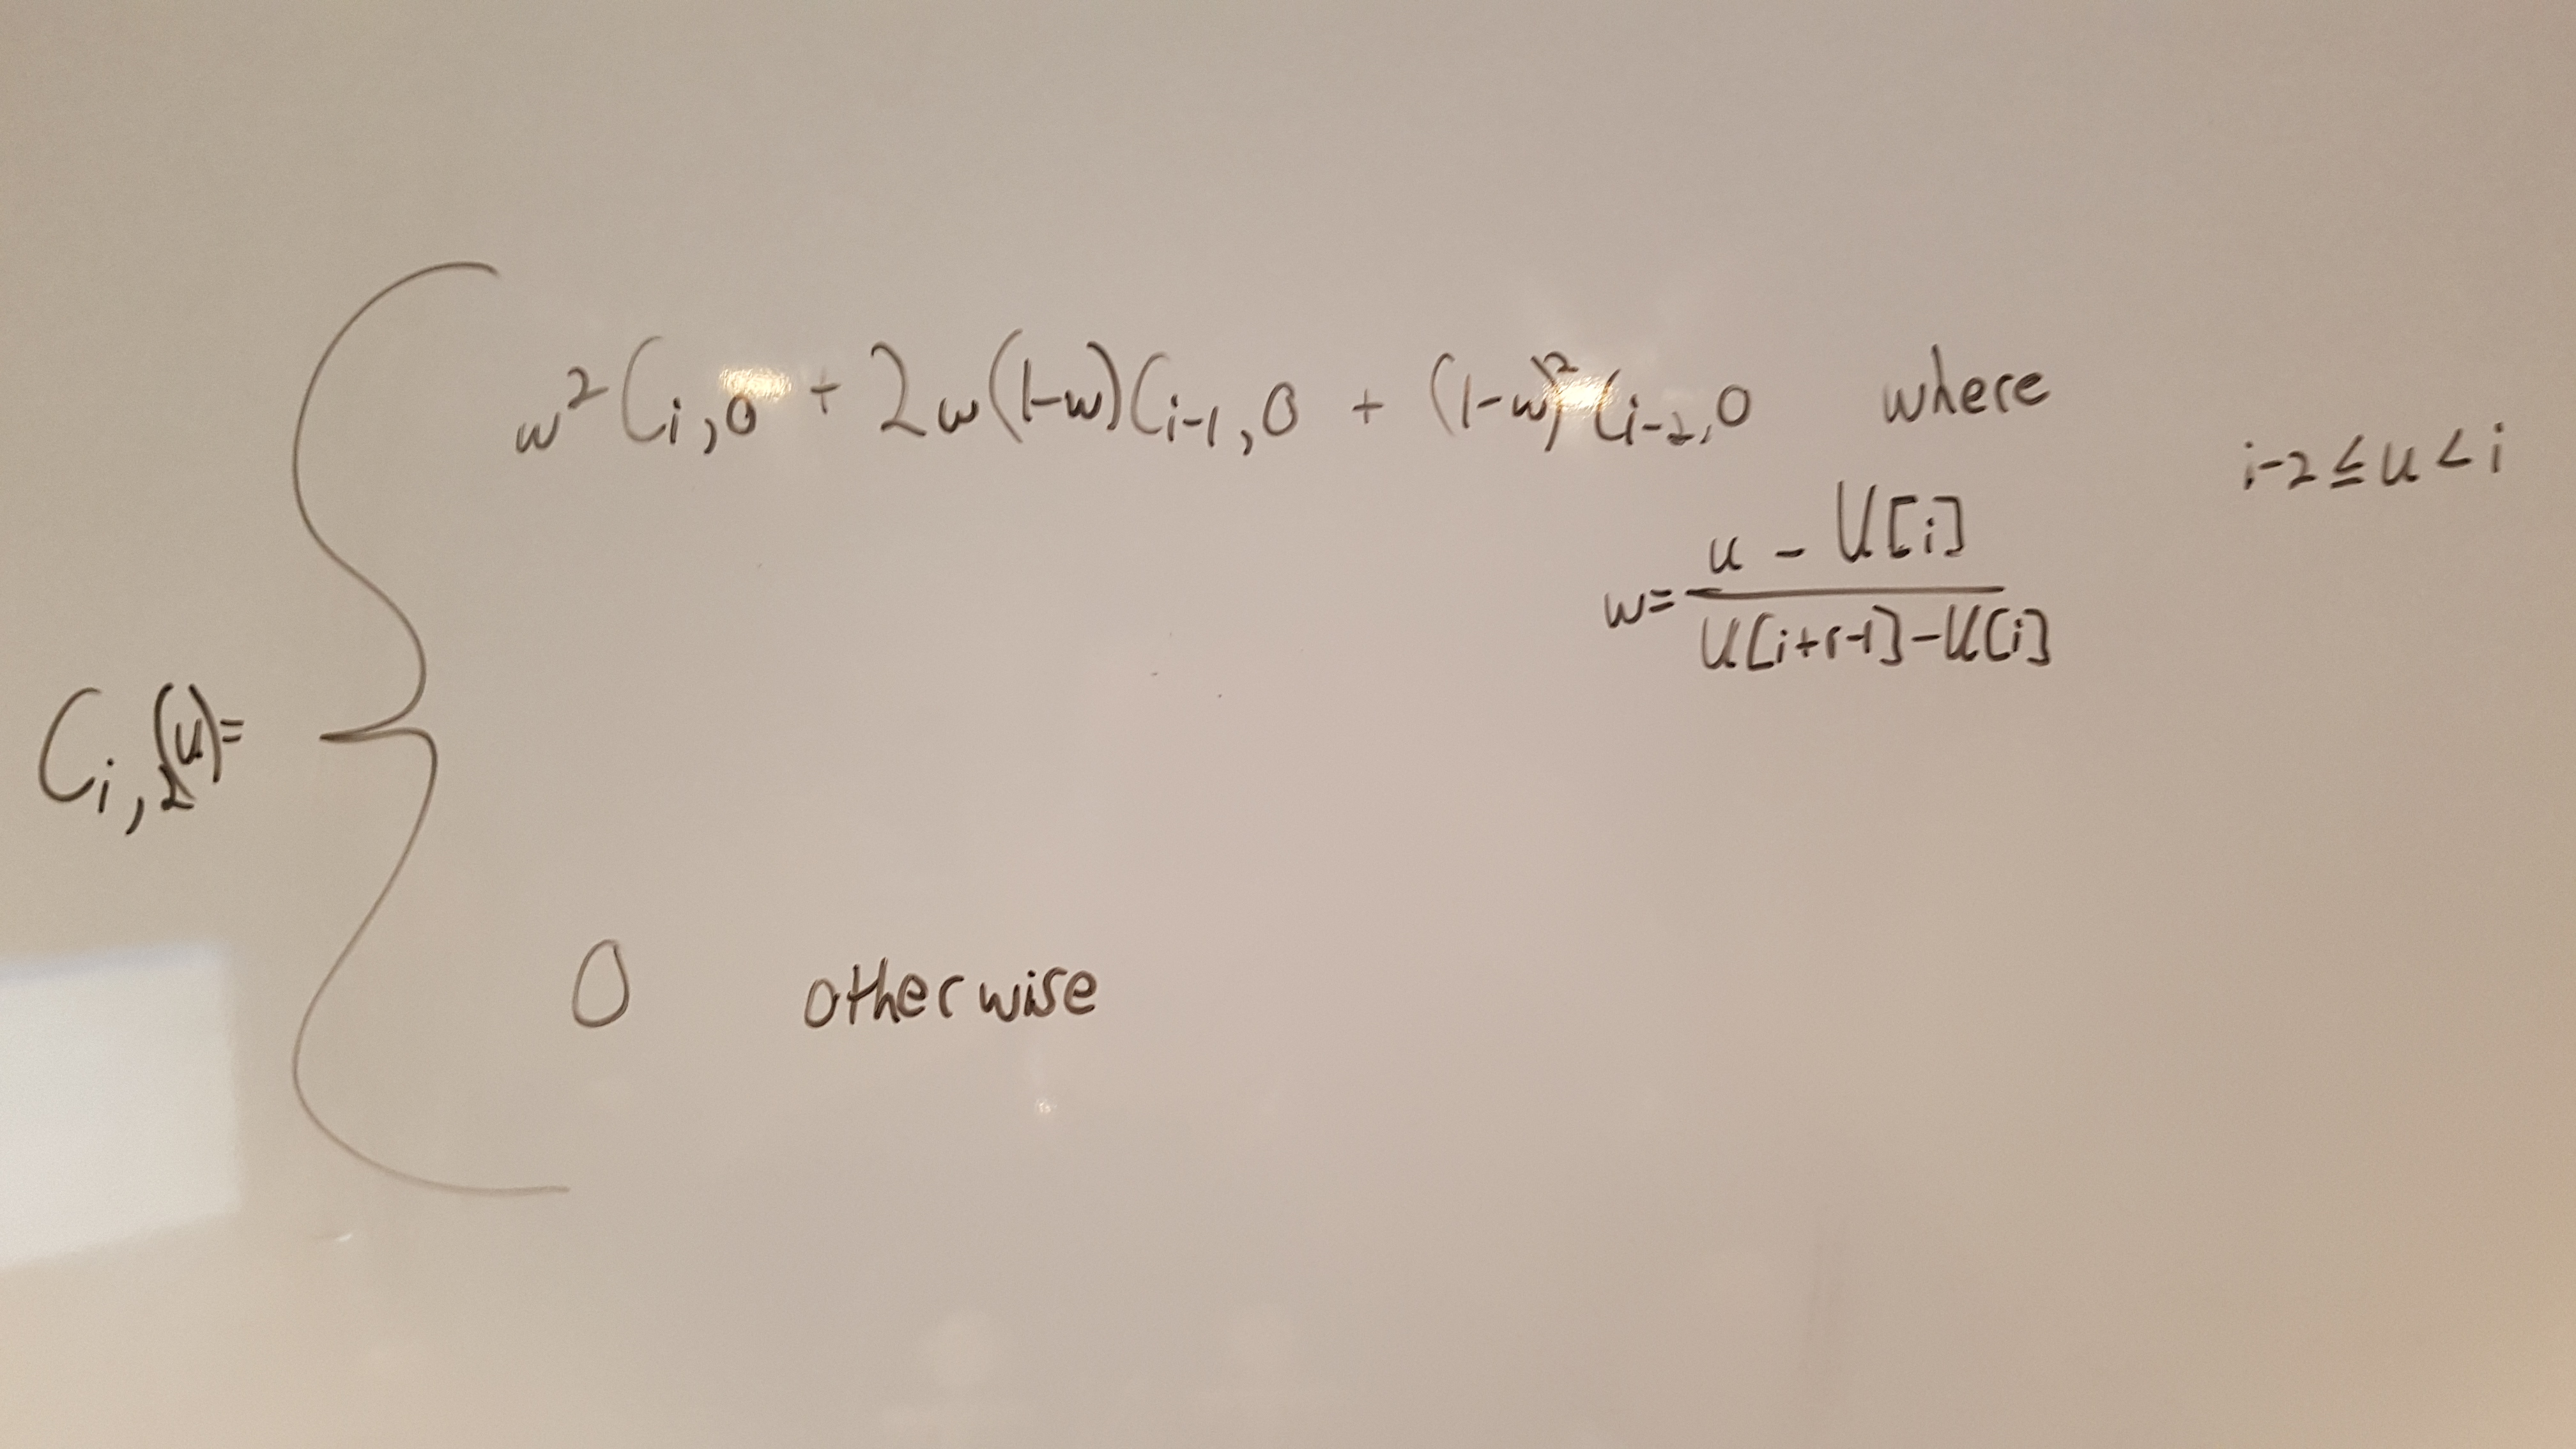 C_{i,2}(u) =
w² C_{i,0} + 2w(1-w) C_{i-1,0} + (1-w)² C_{i-2,0} where
i-2 ≤ u < i
w = \frac{u - U[i]}{U[i+r-1] - U[i]}
0 otherwise